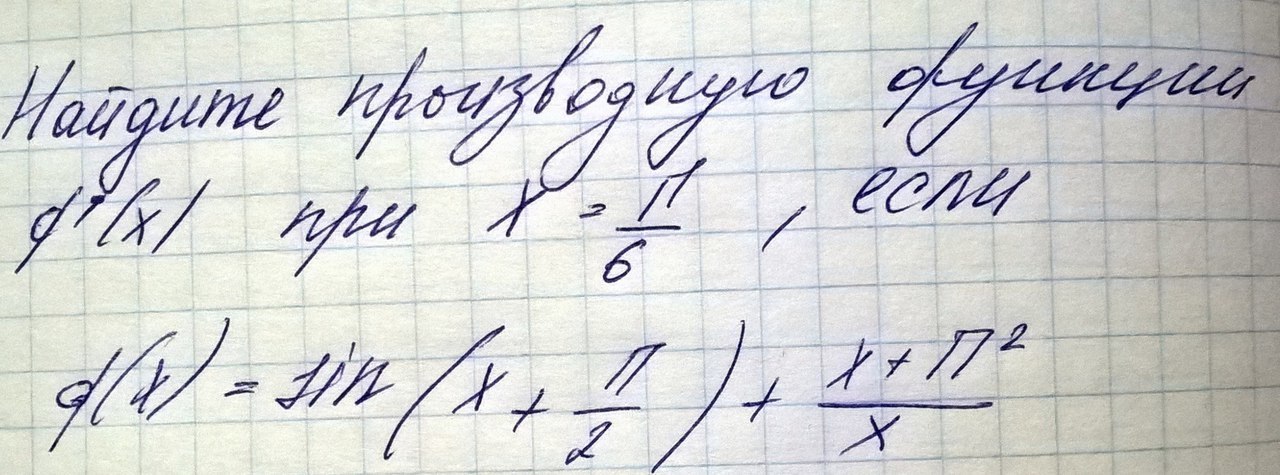 Найдите производную функции
f'(x) при x = π/6, если
f(x) = sin(x + π/2) + (x + π²)/x